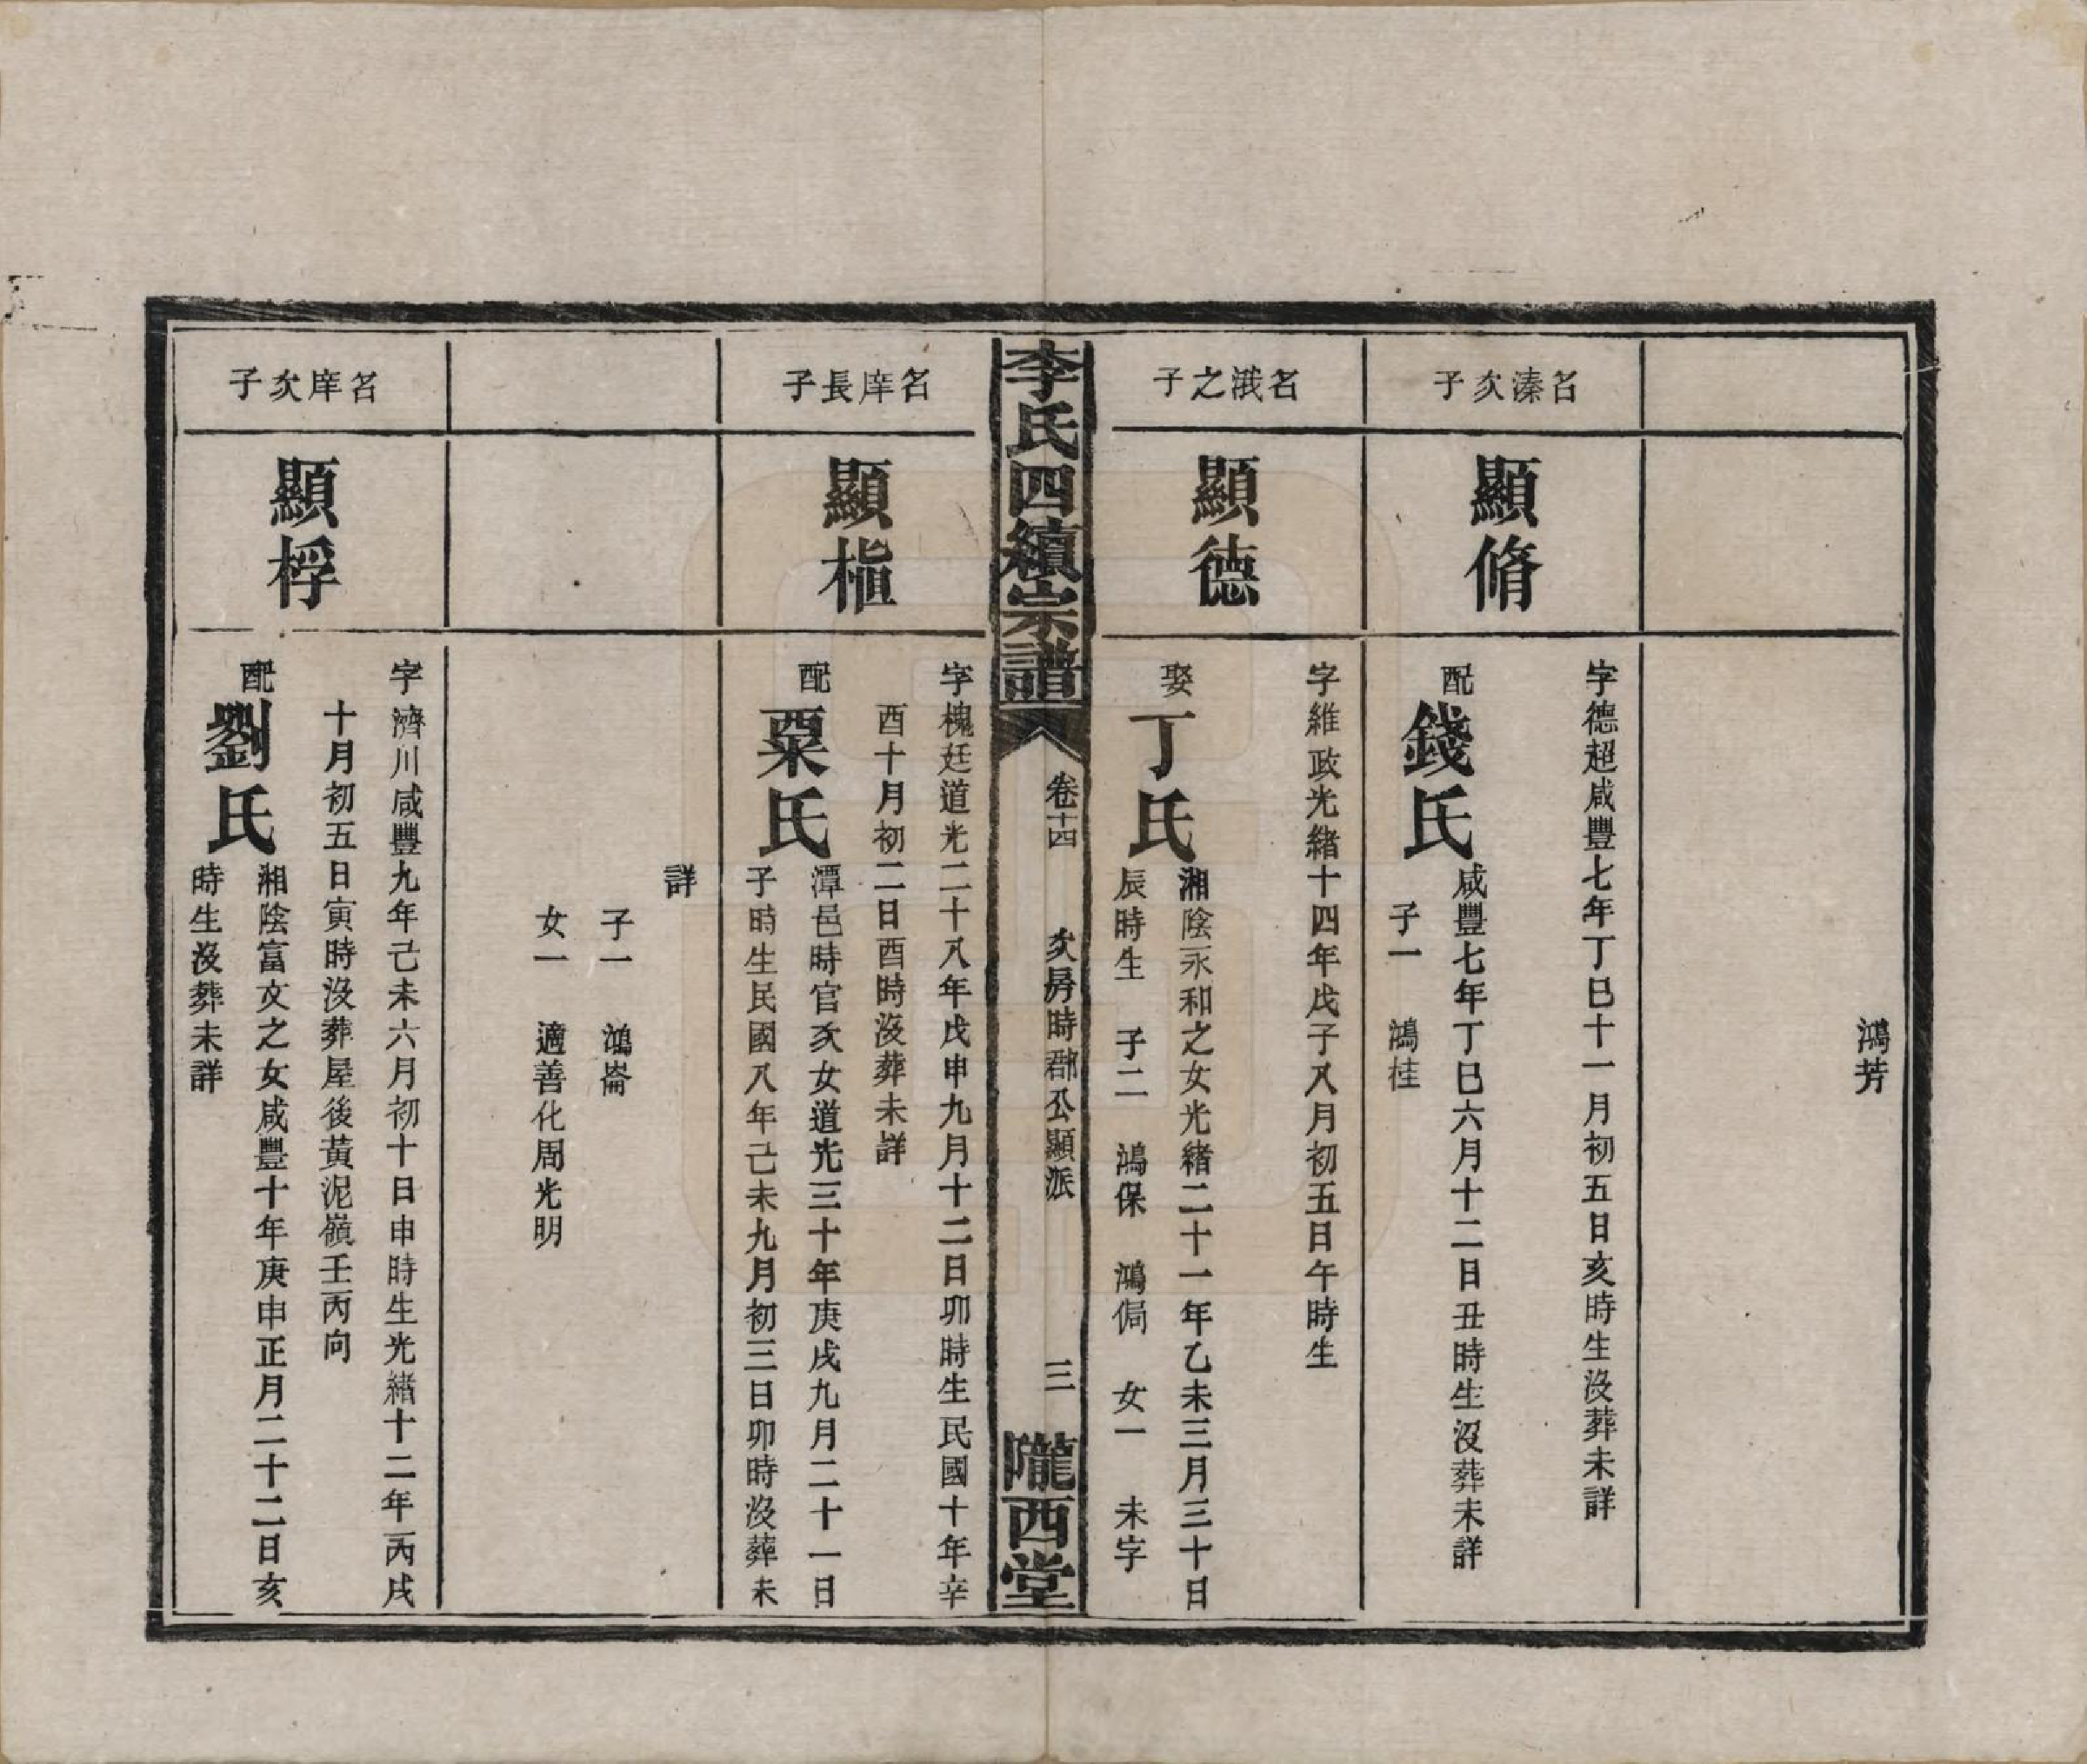 鴻芳
名溱次子
顯脩
字德超咸豐七年丁巳十一月初五日亥時生沒葬未詳
配錢氏
咸豐七年丁巳六月十二日丑時生沒葬未詳
子一 鴻桂
名濈之子
顯德
字維政光緒十四年戊子八月初五日午時生
娶丁氏
湘陰永和之女光緒二十一年乙未三月三十日
辰時生 子二 鴻保 鴻侷 女一 未字
李氏四續宗譜
卷十四
次房時郡公顯派
三
隴西堂
名庠長子
顯植
字槐廷道光二十八年戊申九月十二日卯時生民國十年辛
酉十月初二日酉時沒葬未詳
配粟氏
潭邑時官次女道光三十年庚戌九月二十一日
子時生民國八年己未九月初三日卯時沒葬未
詳
子一 鴻崙
女一 適善化周光明
名庠次子
顯桴
字濟川咸豐九年己未六月初十日申時生光緒十二年丙戌
十月初五日寅時沒葬屋後黃泥嶺壬丙向
配劉氏
湘陰富文之女咸豐十年庚申正月二十二日亥
時生沒葬未詳